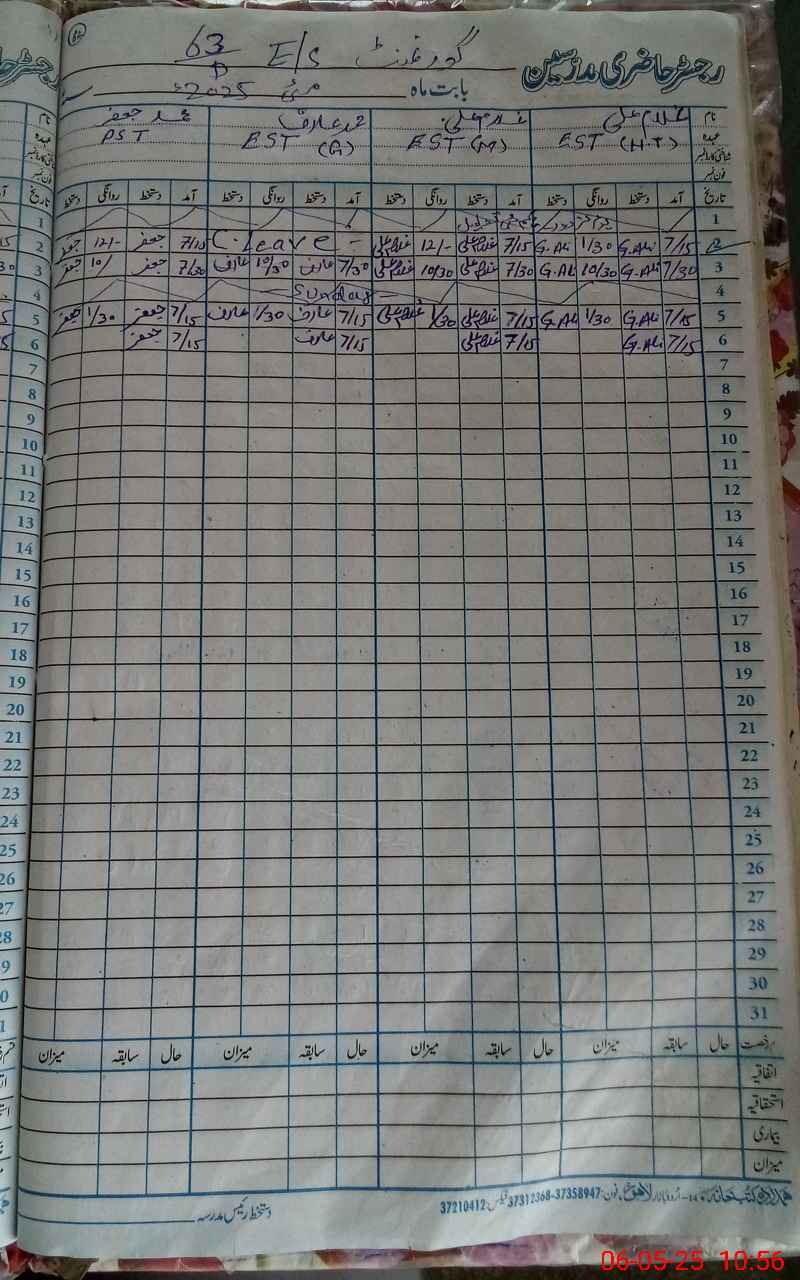 رجسٹر حاضری مدرسین گورنمنٹ E/S 63/D
بابت ماہ مئی 2025ء
نام غلام علی غلام علی محمد عارف محمد جعفر
عہدہ EST (H.T) EST (M) EST (A) PST
شناختی کارڈ نمبر
فون نمبر
تاریخ آمد دستخط روانگی دستخط آمد دستخط روانگی دستخط آمد دستخط روانگی دستخط آمد دستخط روانگی دستخط
1
2 7/15 G.Ali 1/30 G.Ali 7/15 غلام علی 12/- غلام علی C.leave - 7/15 جعفر 12/- جعفر
3 7/30 G.Ali 10/30 G.Ali 7/30 غلام علی 10/30 غلام علی 7/30 عارف 10/30 عارف 7/30 جعفر 10/ جعفر
4 Sunday
5 7/15 G.Ali 1/30 G.Ali 7/15 غلام علی 1/30 غلام علی 7/15 عارف 1/30 عارف 7/15 جعفر 1/30 جعفر
6 7/15 G.Ali 7/15 غلام علی 7/15 عارف 7/15 جعفر
7
8
9
10
11
12
13
14
15
16
17
18
19
20
21
22
23
24
25
26
27
28
29
30
31
رخصت حال سابقہ میزان حال سابقہ میزان حال سابقہ میزان حال سابقہ میزان
اتفاقیہ
استحقاقیہ
بیماری
میزان
ہمدانی کتب خانہ 14-اردو بازار لاہور، فون: 37358947-37312368 فیکس: 37210412
دستخط رئیس مدرسہ
06-05-25 10:56